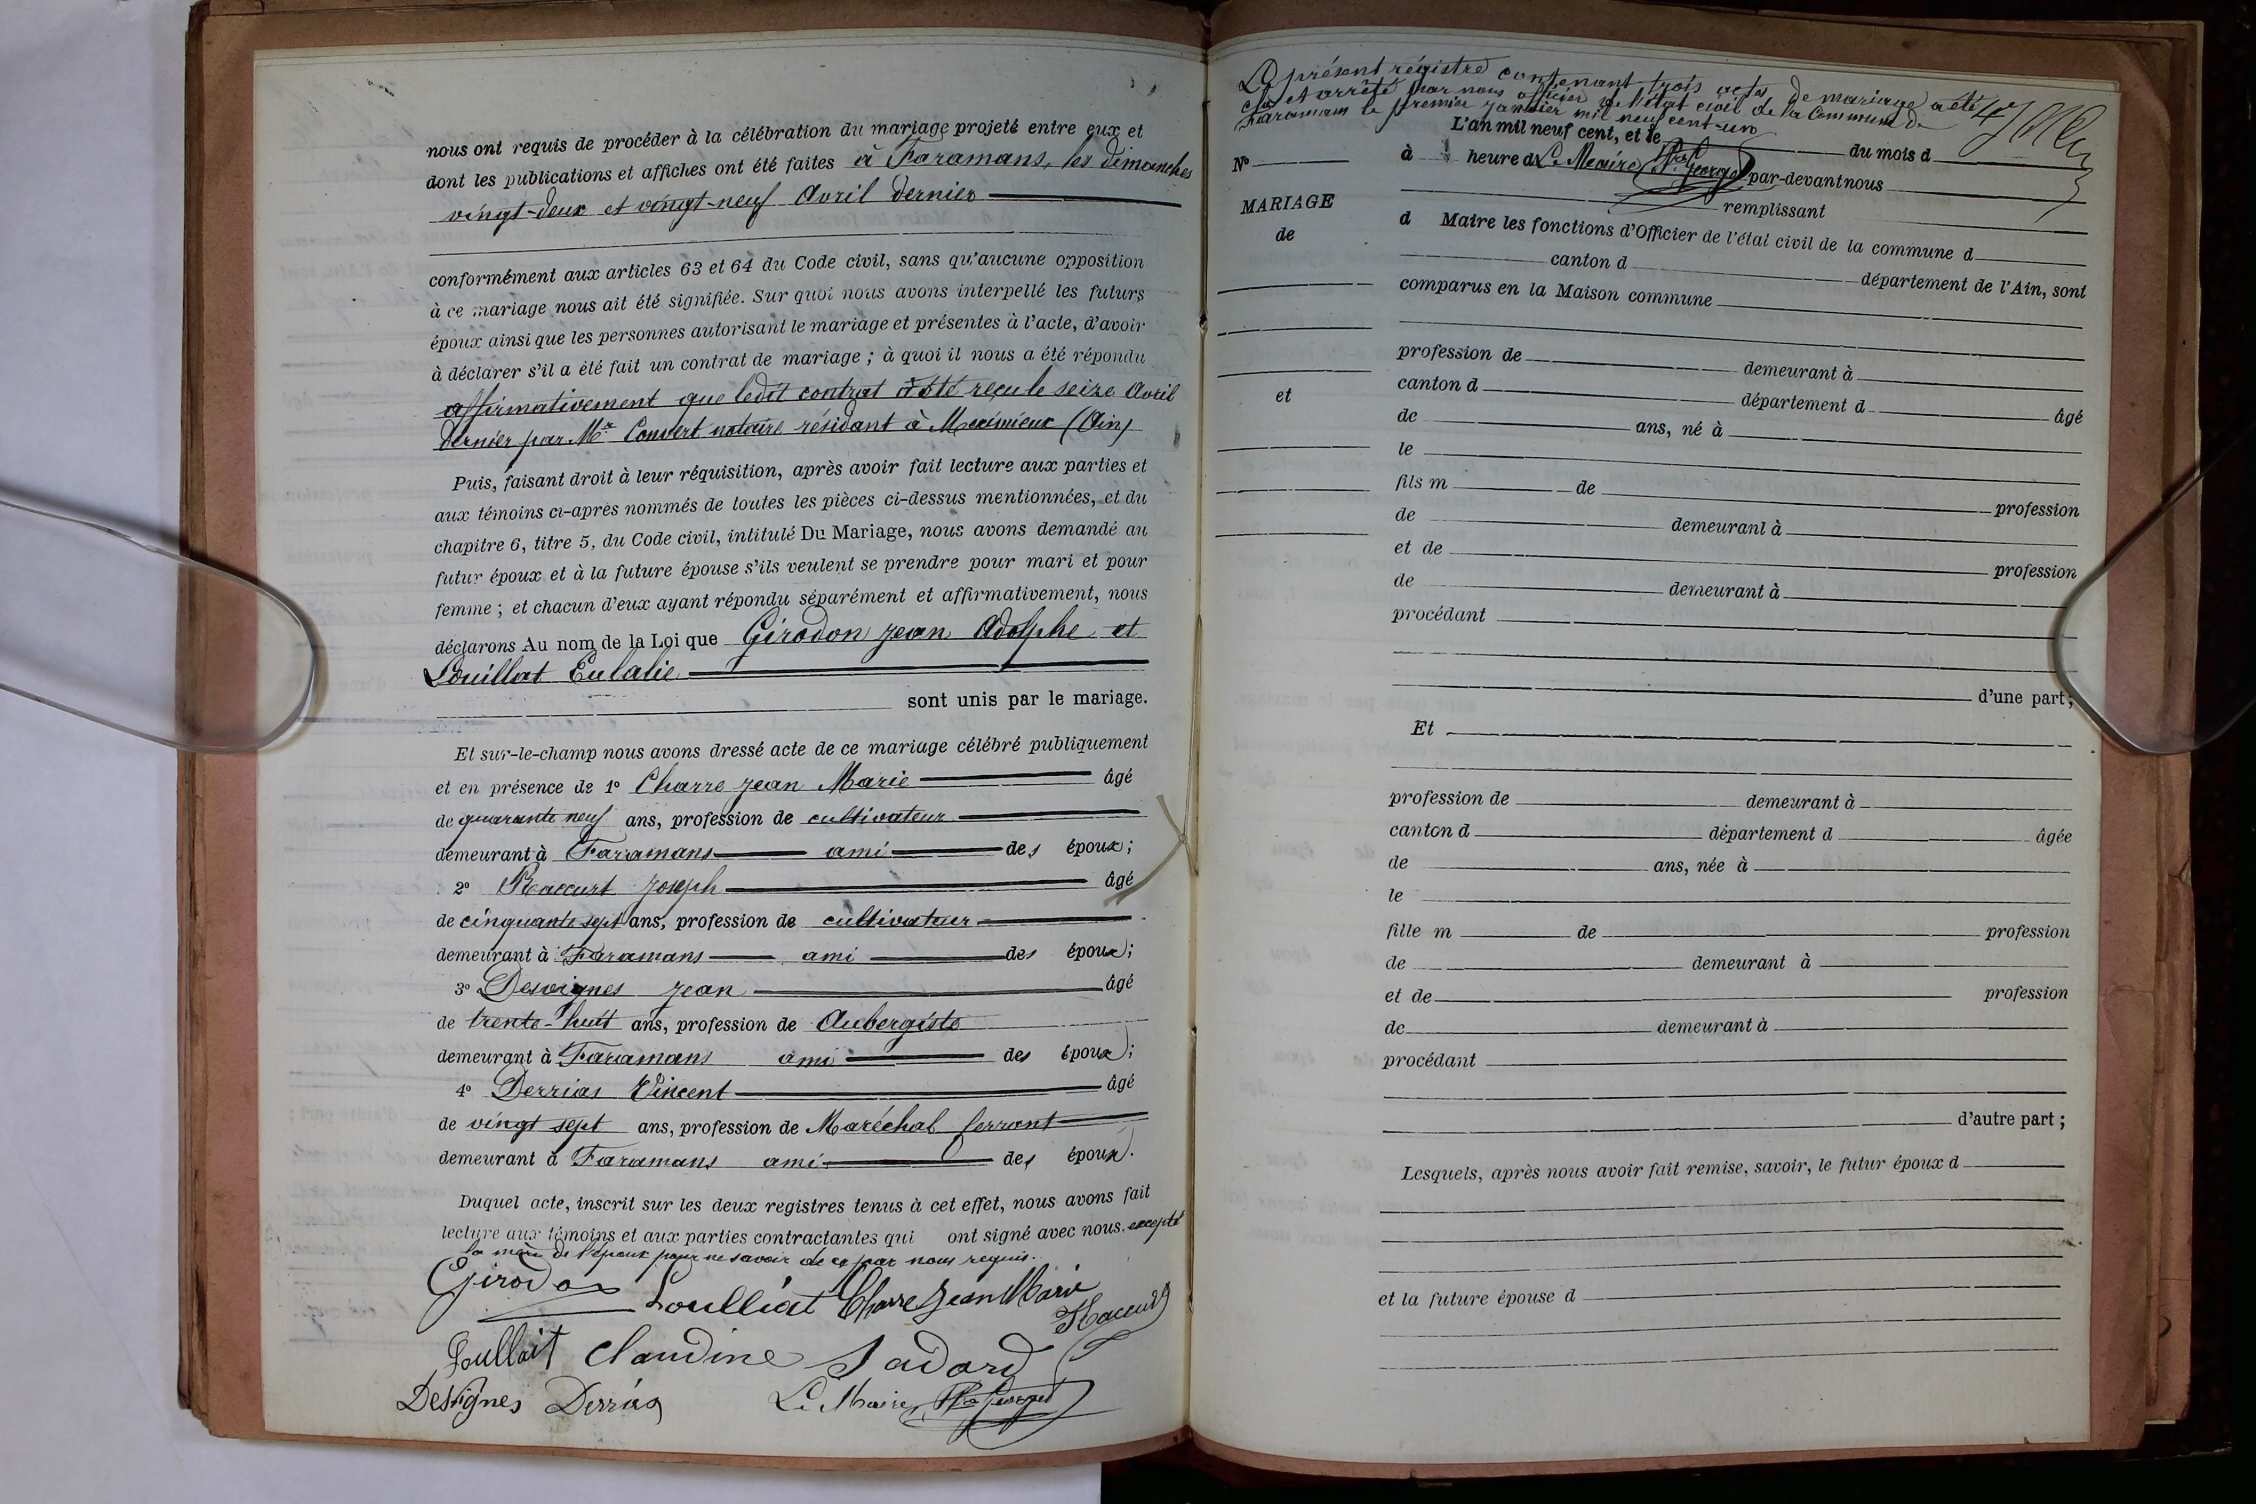 nous ont requis de procéder à la célébration du mariage projeté entre eux et
dont les publications et affiches ont été faites à Faramans, les dimanches
vingt-deux et vingt-neuf Avril dernier
conformément aux articles 63 et 64 du Code civil, sans qu'aucune opposition
à ce mariage nous ait été signifiée. Sur quoi nous avons interpellé les futurs
époux ainsi que les personnes autorisant le mariage et présentes à l'acte, d'avoir
à déclarer s'il a été fait un contrat de mariage ; à quoi il nous a été répondu
affirmativement que ledit contrat a été reçu le seize Avril
dernier par Mr Convert notaire résidant à Meximieux (Ain)
Puis, faisant droit à leur réquisition, après avoir fait lecture aux parties et
aux témoins ci-après nommés de toutes les pièces ci-dessus mentionnées, et du
chapitre 6, titre 5, du Code civil, intitulé Du Mariage, nous avons demandé au
futur époux et à la future épouse s'ils veulent se prendre pour mari et pour
femme ; et chacun d'eux ayant répondu séparément et affirmativement, nous
déclarons Au nom de la Loi que Girodon Jean Adolphe et
Louillat Eulalie
sont unis par le mariage.
Et sur-le-champ nous avons dressé acte de ce mariage célébré publiquement
et en présence de 1° Charre Jean Marie âgé
de quarante neuf ans, profession de cultivateur
demeurant à Faramans ami des époux ;
2° Raccurt Joseph âgé
de cinquante sept ans, profession de cultivateur
demeurant à Faramans ami des époux ;
3° Desvignes Jean âgé
de trente-huit ans, profession de Aubergiste
demeurant à Faramans ami des époux ;
4° Derrias Vincent âgé
de vingt sept ans, profession de Maréchal ferrant
demeurant à Faramans ami des époux.
Duquel acte, inscrit sur les deux registres tenus à cet effet, nous avons fait
lecture aux témoins et aux parties contractantes qui ont signé avec nous. excepté
la mère de l'époux pour ne savoir de ce par nous requis.
Girodon Loulliat Charre Jean Marie
Raccurt
Loulliat Claudine Jadard
Desvignes Derrias Le Maire
Le présent régistre contenant trois actes de mariage a été
clos et arrêté par nous officier de l'état civil de la Commune de
Faramans le premier janvier mil neuf cent-un
L'an mil neuf cent, et le du mois d
N° à heure d Le Maire par-devant nous
remplissant
MARIAGE
de
d Maire les fonctions d'Officier de l'état civil de la commune d
canton d département de l'Ain, sont
comparus en la Maison commune
profession de demeurant à
et
canton d département d âgé
de ans, né à
le
fils m de profession
de demeurant à
et de profession
de demeurant à
procédant
d'une part ;
Et
profession de demeurant à
canton d département d âgée
de ans, née à
le
fille m de profession
de demeurant à
et de profession
de demeurant à
procédant
d'autre part ;
Lesquels, après nous avoir fait remise, savoir, le futur époux d
et la future épouse d